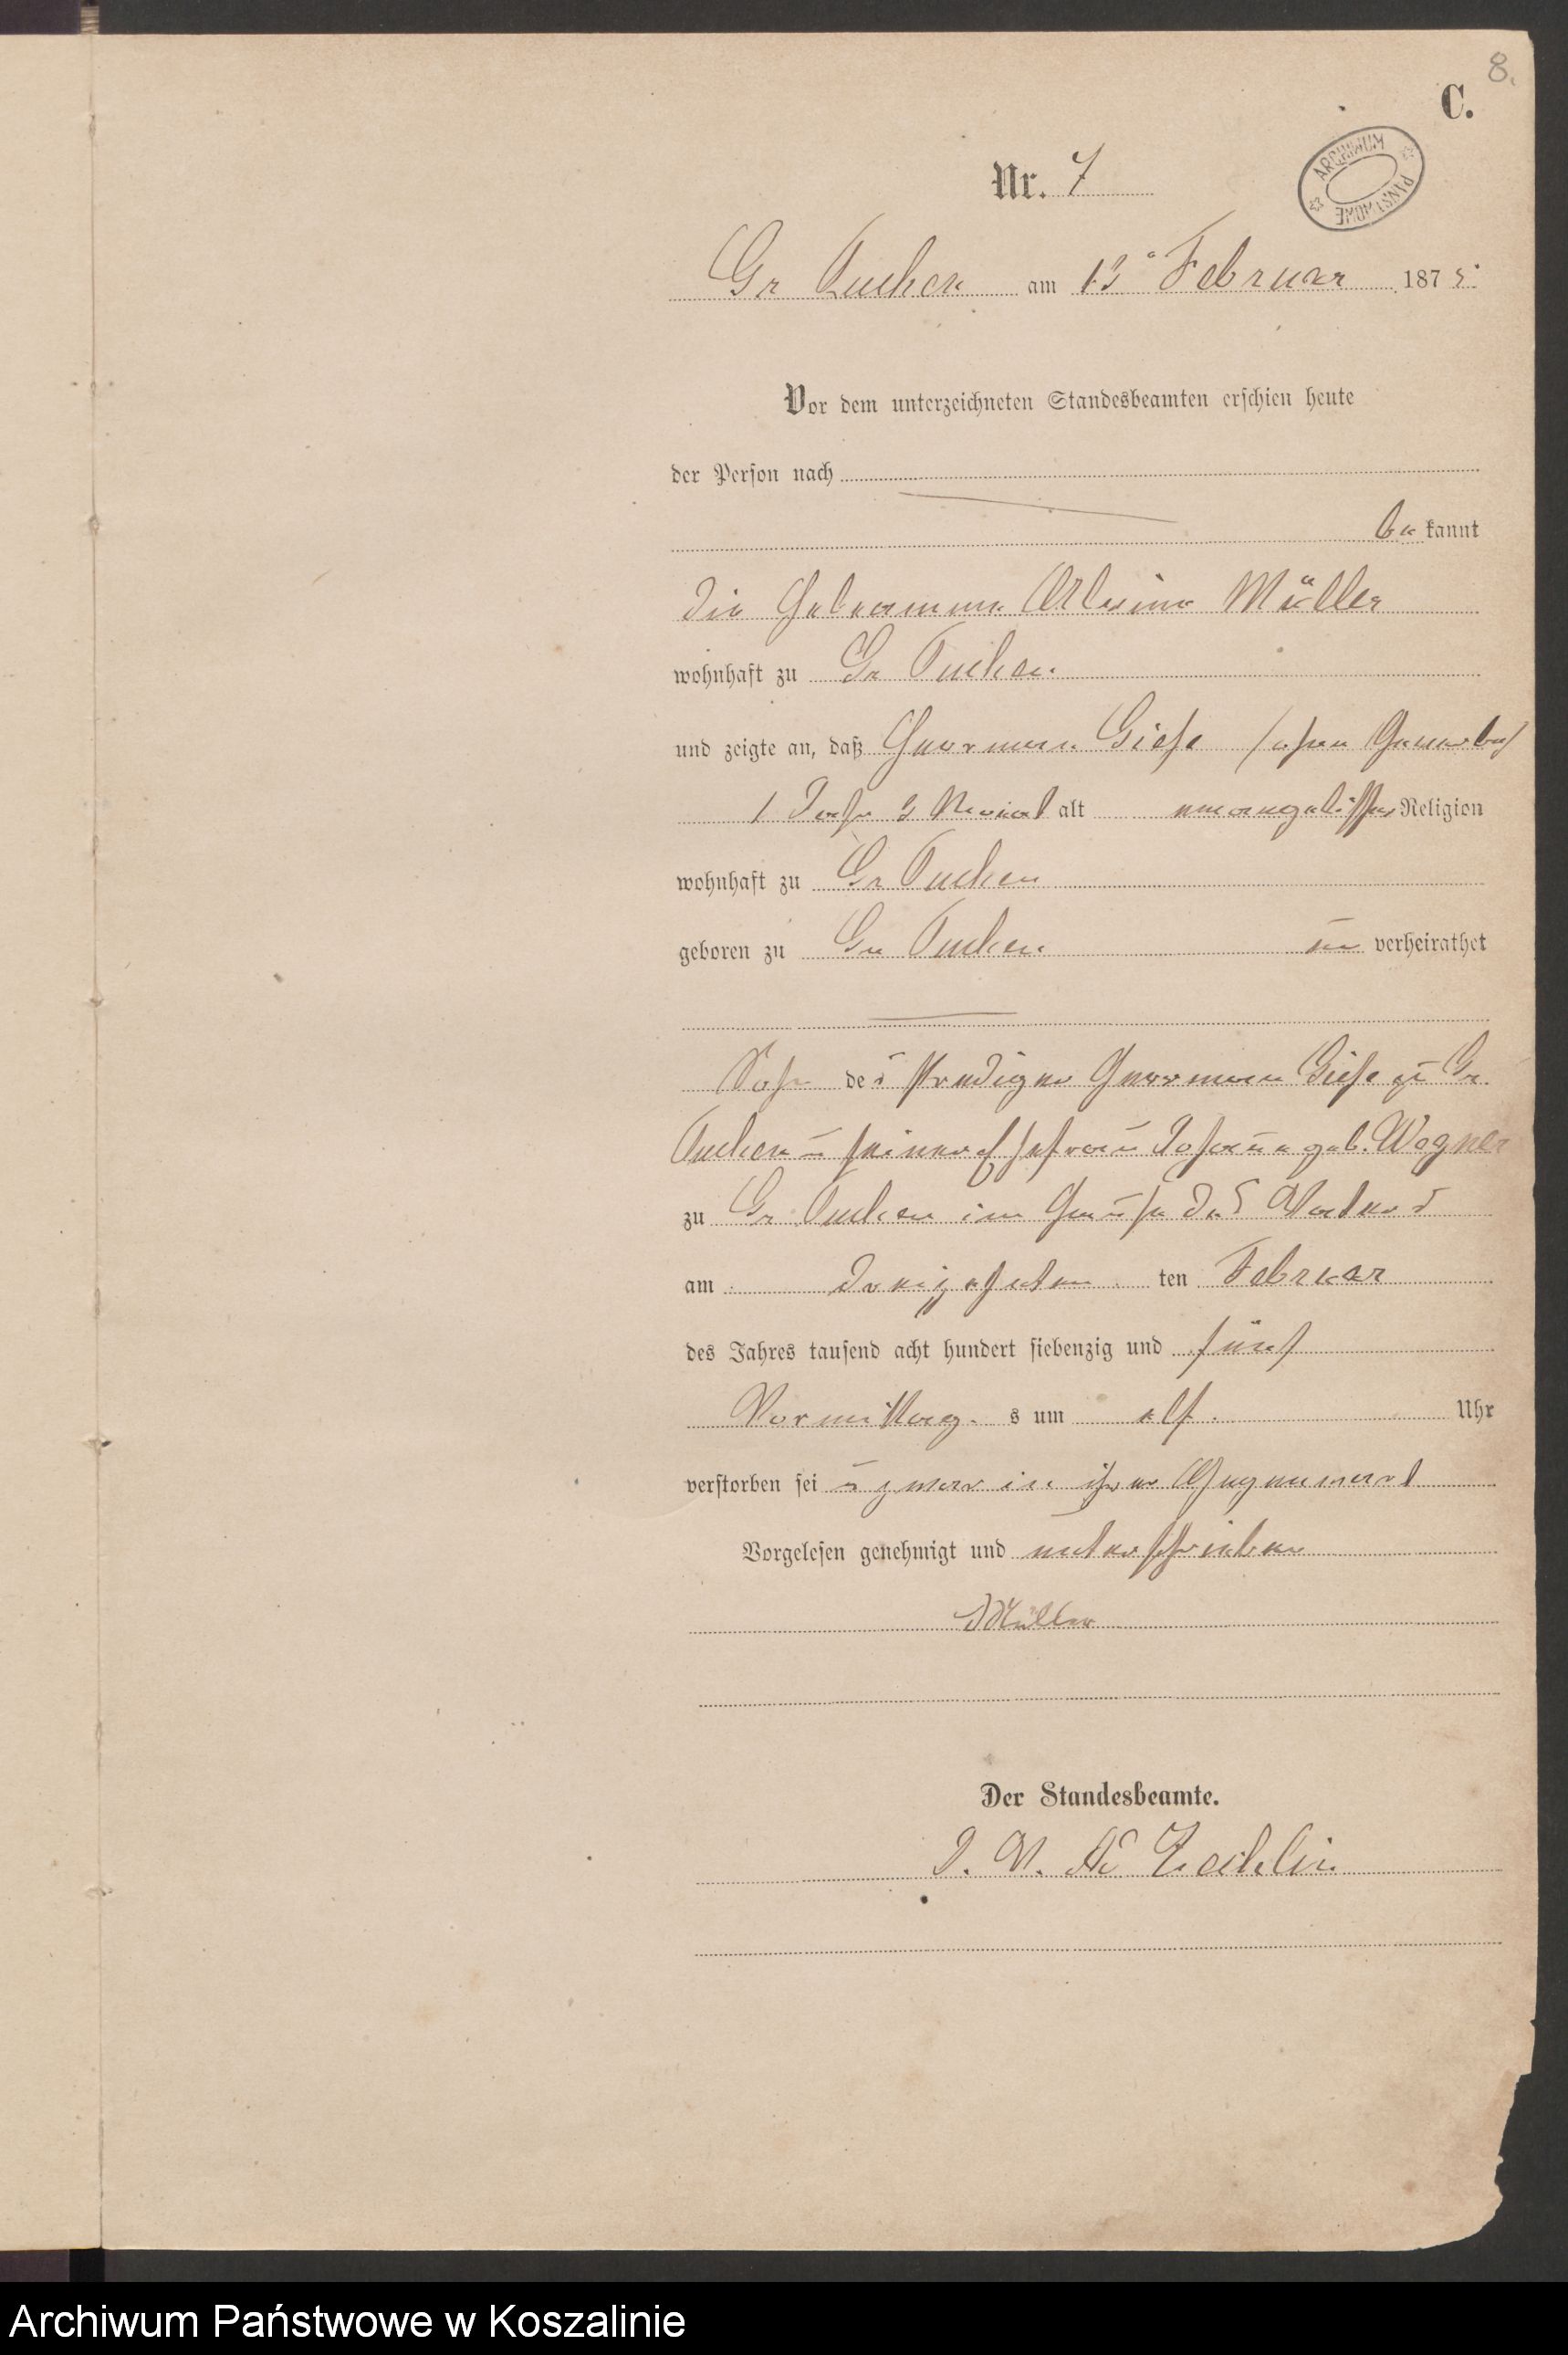 8.
C.
ARCHIWUM PAŃSTWOWE
Nr. 7
Gr Tuchen am 13 Februar 1875
Vor dem unterzeichneten Standesbeamten erschien heute
der Person nach
bekannt
die Hebamme Alwine Müller
wohnhaft zu Gr Tuchen
und zeigte an, daß Herrman Giese ohne Gewerbe
1 Jahr 3 Monat alt evangelischer Religion
wohnhaft zu Gr Tuchen
geboren zu Gr Tuchen un verheirathet
Sohn des Prediger Herrman Giese zu Gr.
Tuchen u seiner Ehefrau Johanna geb. Wagner
zu Gr. Tuchen im Hause des Vaters
am dreizehnten ten Februar
des Jahres tausend acht hundert siebenzig und fünf
Vormittag s um elf Uhr
verstorben sei u zwar in ihrer Gegenwart
Vorgelesen genehmigt und unterschrieben
Müller
Der Standesbeamte.
J. V. Zechlin
Archiwum Państwowe w Koszalinie